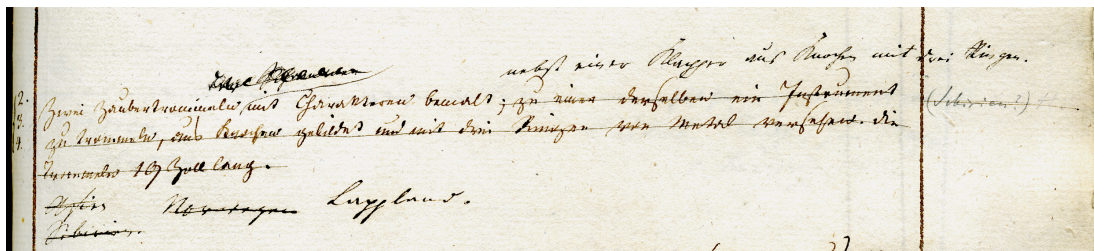 nebst einer Klapper aus Knochen mit drei Ringen.
2. Zwei Zaubertrommeln mit Charakteren bemalt; zu einer derselben ein Instrument (Sibirien?)
3. zu trommeln, aus Knochen gebildet und mit drei Ringen von Metal versehen. die
4. Trommeln 19 Zoll lang.
Norwegen Lappland.
Sibirien.